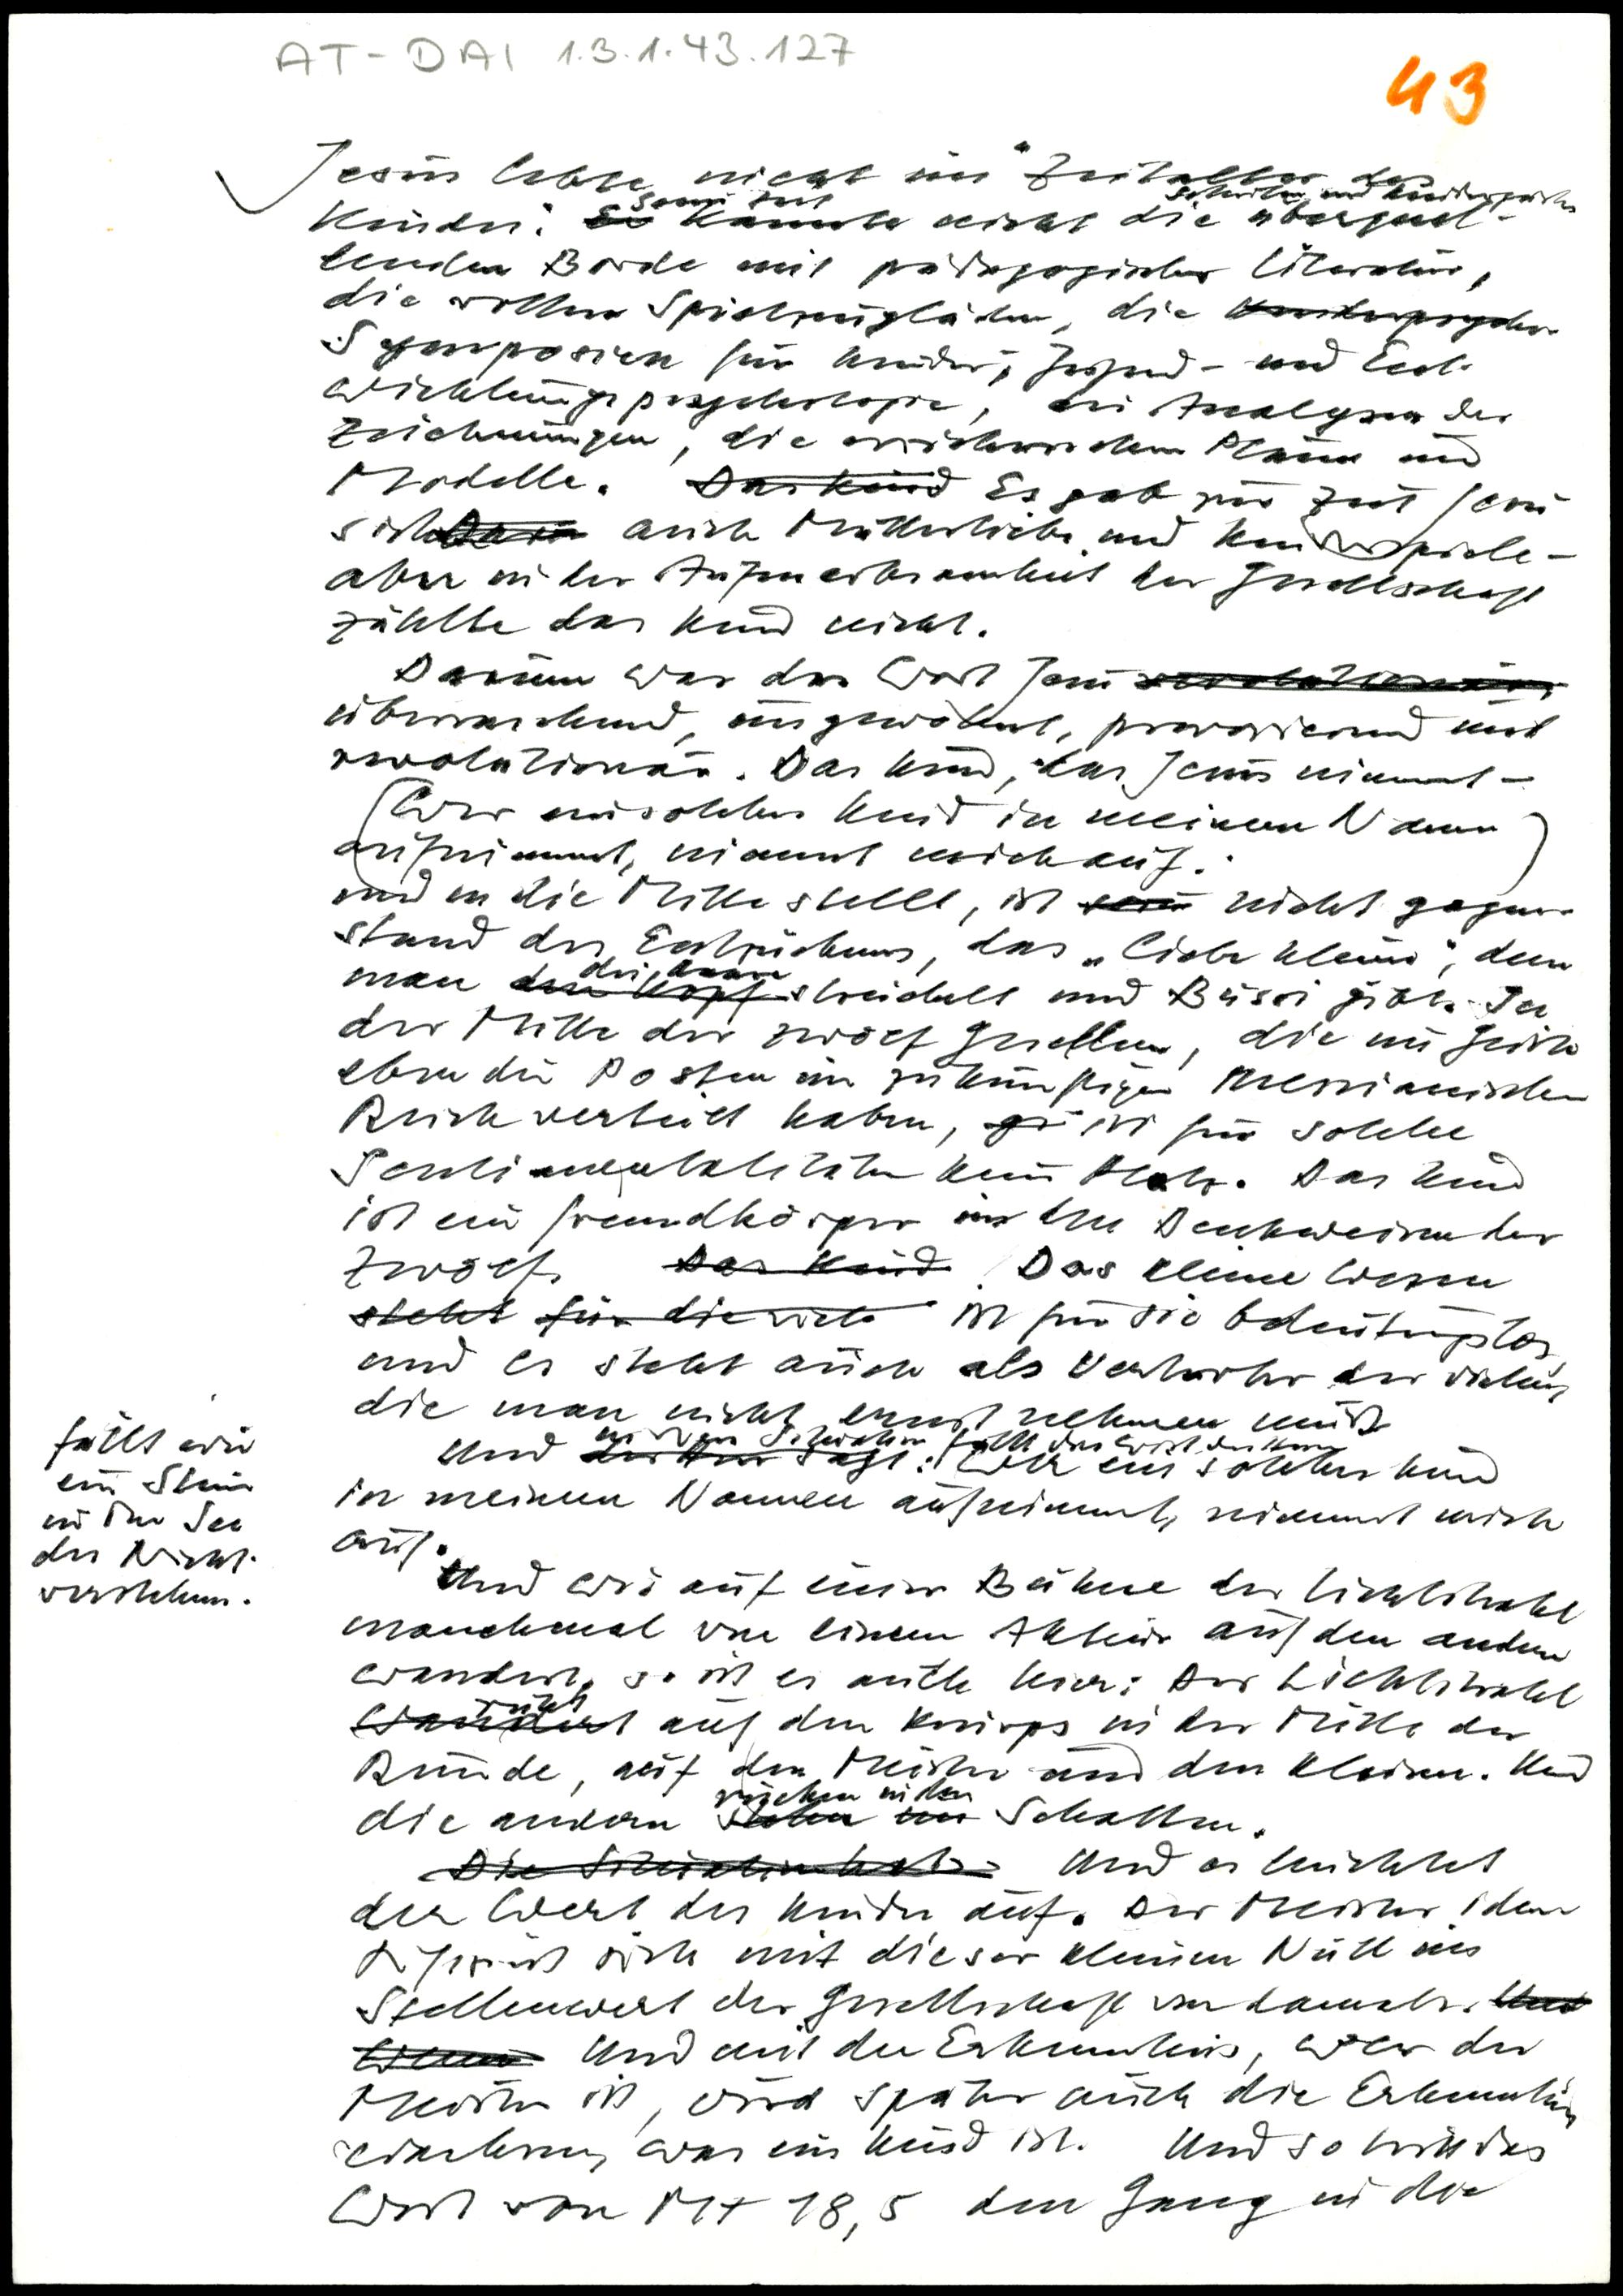 AT-DAI 1.3.1.43.127
43
Jesus lebte nicht im "Zeitalter des
Kindes". Seine Zeit kannte nicht die überquel-
lenden Borde mit pädagogischer Literatur,
die vollen Spielzeugläden, die
Symposien für Kinder-, Jugend- und Ent-
wicklungspsychologie, die Analysen der
Zeichnungen, die erzieherischen Pläne und
Modelle. Das Kind Es gab zur Zeit Jesu
sicher auch Mutterliebe und Kinderspiele -
aber in der Aufmerksamkeit der Gesellschaft
zählte das Kind nicht.
Darum war das Wort Jesu revolutionär,
überraschend, ungewohnt, provozierend und
revolutionär. Das Kind, das Jesus nimmt -
(Wer ein solches Kind in meinem Namen
aufnimmt, nimmt mich auf.)
und in die Mitte stellt, ist nicht Gegen-
stand des Entzückens, das „liebe Kleine", dem
man den Kopf die Haare streichelt und Bussi gibt. In
der Mitte der zwölf Gesellen, die im Geiste
eben die Posten im zukünftigen messianischen
Reich verteilt haben, ist für solche
Sentimentalitäten kein Platz. Das Kind
ist ein Fremdkörper in den Denkweisen der
Zwölf. Das Kind Das kleine Wesen
steht für die viele ist für sie bedeutungslos
und es steht auch als Vertreter der vielen,
die man nicht ernst nehmen muß
Und in dieser Situation fällt das Wort des Herrn
der Herr sagt: Wer ein solches Kind
in meinem Namen aufnimmt, nimmt mich
auf.
fällt wie
ein Stein
in den See
des Nicht-
verstehens.
Und wie auf einer Bühne der Lichtstrahl
manchmal von einem Akteur auf den andern
wandert, so ist es auch hier: Der Lichtstrahl
wandert rückt auf den Knirps in der Mitte der
Runde, auf den Meister und den Kleinen. Und
die andern stehen im rücken in den Schatten.
Die Situation hat Und es leuchtet
der Wert des Kindes auf. Der Meister iden
tifiziert sich mit dieser kleinen Null im
Stellenwert der Gesellschaft von damals. Und
Wenn Und mit der Erkenntnis, wer der
Meister ist, wird später auch die Erkenntnis
wachsen, was ein Kind ist. Und so tritt das
Wort von Mt 18,5 den Gang in die